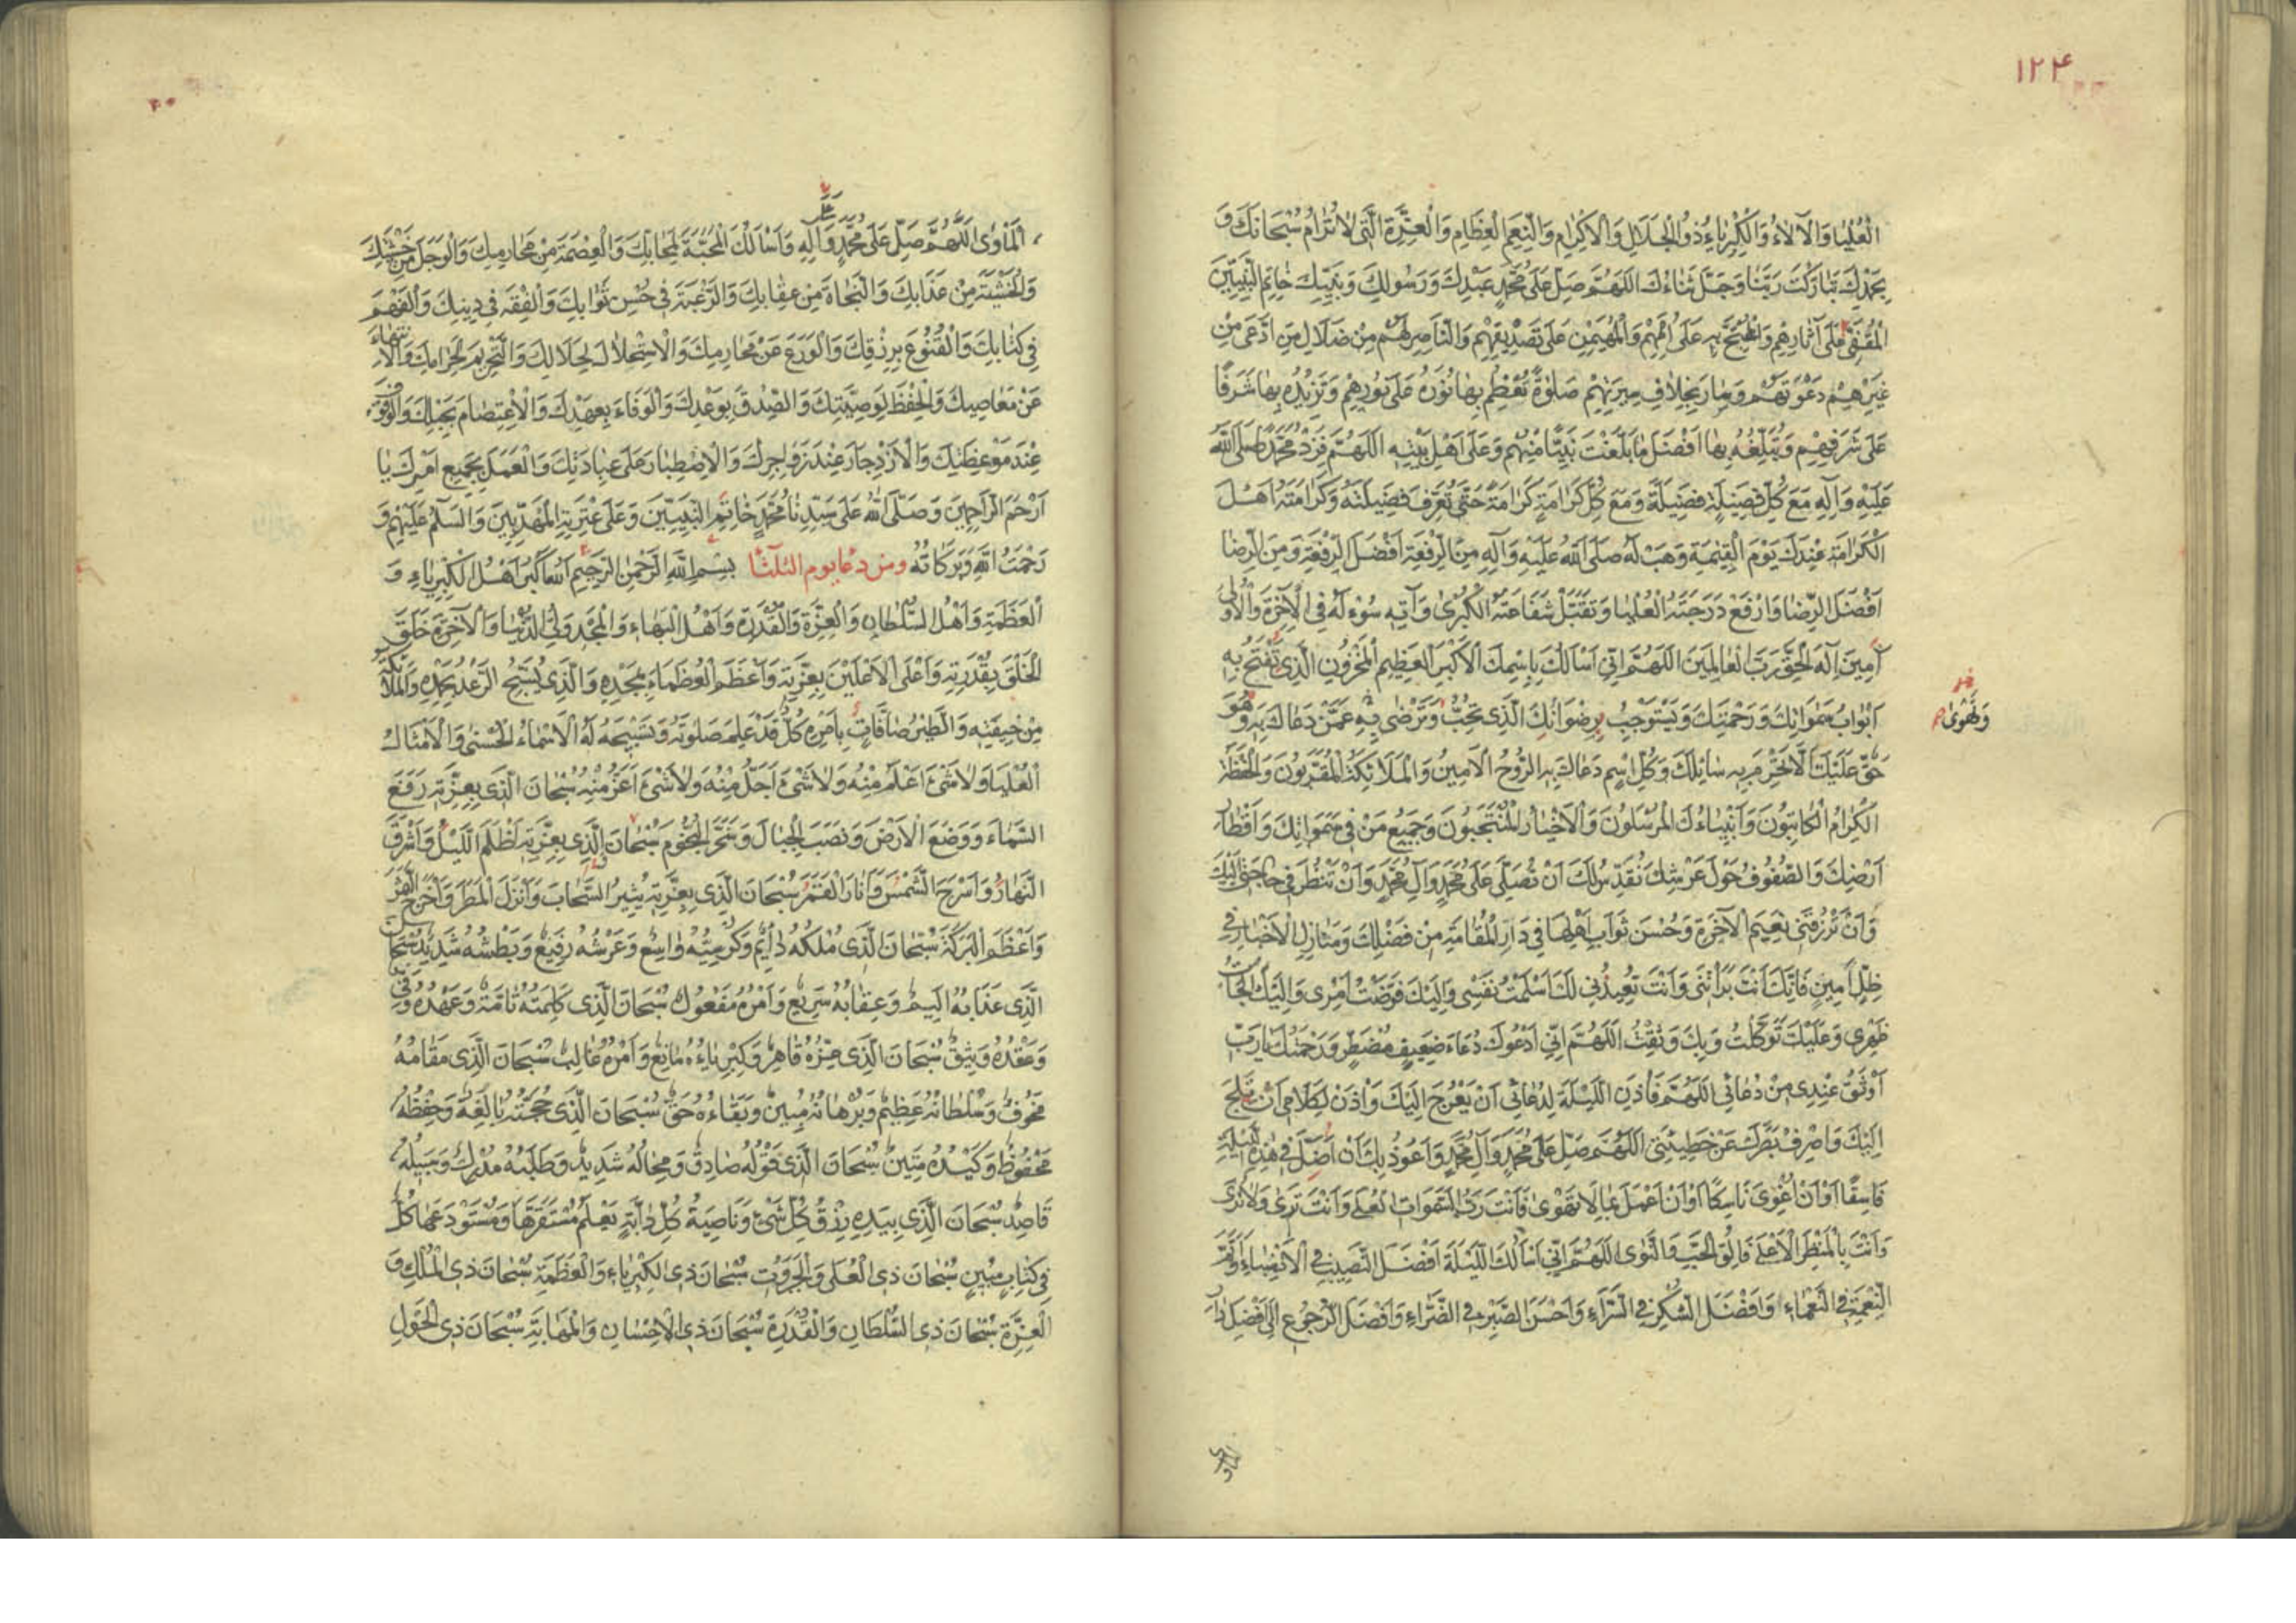 ١٢٤
الْعُلْيَا وَالْآلَاءُ وَالْكِبْرِيَاءُ ذُو الْجَلَالِ وَالْاِكْرَامِ وَالنِّعَمِ الْعِظَامِ وَالْعِزَّةِ الَّتِي لَا تُرَامُ سُبْحَانَكَ وَ
بِحَمْدِكَ تَبَارَكْتَ رَبَّنَا وَجَلَّ ثَنَاءُكَ اللَّهُمَّ صَلِّ عَلَى مُحَمَّدٍ عَبْدِكَ وَرَسُولِكَ وَنَبِيِّكَ خَاتَمِ النَّبِيِّينَ
الْمُقَفَّى عَلَى آثَارِهِمْ وَالْمُحْتَجِّ بِهِ عَلَى اُمَمِهِمْ وَالْمُهَيْمِنِ عَلَى تَصْدِيقِهِمْ وَالنَّاصِرِ لَهُمْ مِنْ ضَلَالِ مَنِ ادَّعَى مِنْ
غَيْرِهِمْ دَعْوَتَهُمْ وَسَارَ بِخِلَافِ سِيرَتِهِمْ صَلٰوةً تُعَظِّمُ بِهَا نُورَهُ عَلَى نُورِهِمْ وَتَزِيدُهُ بِهَا شَرَفًا
عَلَى شَرَفِهِمْ وَتُبَلِّغُهُ بِهَا اَفْضَلَ مَا بَلَّغْتَ نَبِيًّا مِنْهُمْ وَعَلَى اَهْلِ بَيْتِهِ اللَّهُمَّ فَزِدْ مُحَمَّدًا صَلَّى اللَّهُ
عَلَيْهِ وَآلِهِ مَعَ كُلِّ فَضِيلَةٍ فَضِيلَةً وَمَعَ كُلِّ كَرَامَةٍ كَرَامَةً حَتَّى تُعَرِّفَ فَضِيلَتَهُ وَكَرَامَتَهُ اَهْلَ
الْكَرَامَةِ عِنْدَكَ يَوْمَ الْقِيٰمَةِ وَهَبْ لَهُ صَلَّى اللَّهُ عَلَيْهِ وَآلِهِ مِنَ الرِّفْعَةِ اَفْضَلَ الرِّفْعَةِ وَمِنَ الرِّضَا
اَفْضَلَ الرِّضَا وَارْفَعْ دَرَجَتَهُ الْعُلْيَا وَتَقَبَّلْ شَفَاعَتَهُ الْكُبْرَى وَآتِهِ سُؤْلَهُ فِي الْآخِرَةِ وَالْاُولَى
آمِينَ اِلٰهَ الْحَقِّ رَبَّ الْعَالَمِينَ اللَّهُمَّ اِنِّي اَسْاَلُكَ بِاِسْمِكَ الْاَكْبَرِ الْعَظِيمِ الْمَخْزُونِ الَّذِي تَفْتَحُ بِهِ
اَبْوَابَ سَمٰوَاتِكَ وَرَحْمَتِكَ وَيَسْتَوْجِبُ رِضْوَانَكَ الَّذِي تُحِبُّ وَتَرْضَى بِهِ عَمَّنْ دَعَاكَ بِهِ وَهُوَ
وَتَهْوَى
حَقٌّ عَلَيْكَ اَلَّا تَحْرِمَ بِهِ سَائِلَكَ وَكُلِّ اسْمٍ دَعَاكَ بِهِ الرُّوحُ الْاَمِينُ وَالْمَلَائِكَةُ الْمُقَرَّبُونَ وَالْحَفَظَةُ
الْكِرَامُ الْكَاتِبُونَ وَاَنْبِيَاءُكَ الْمُرْسَلُونَ وَالْاَخْيَارُ الْمُنْتَجَبُونَ وَجَمِيعُ مَنْ فِي سَمٰوَاتِكَ وَاَقْطَارِ
اَرْضِكَ وَالصُّفُوفُ حَوْلَ عَرْشِكَ تُقَدِّسُ لَكَ اَنْ تُصَلِّيَ عَلَى مُحَمَّدٍ وَآلِ مُحَمَّدٍ وَاَنْ تَنْظُرَ فِي حَاجَتِي اِلَيْكَ
وَاَنْ تَرْزُقَنِي نَعِيمَ الْآخِرَةِ وَحُسْنَ ثَوَابِ اَهْلِهَا فِي دَارِ الْمُقَامَةِ مِنْ فَضْلِكَ وَمَنَازِلِ الْاَخْيَارِ فِي
ظِلٍّ اَمِينٍ فَاِنَّكَ اَنْتَ بَرَأْتَنِي وَاَنْتَ تُعِيدُنِي لَكَ اَسْلَمْتُ نَفْسِي وَاِلَيْكَ فَوَّضْتُ اَمْرِي وَاِلَيْكَ الْجَأْتُ
ظَهْرِي وَعَلَيْكَ تَوَكَّلْتُ وَبِكَ وَثِقْتُ اللَّهُمَّ اِنِّي اَدْعُوكَ دُعَاءَ ضَعِيفٍ مُضْطَرٍّ وَرَحْمَتُكَ يَا رَبِّ
اَوْثَقُ عِنْدِي مِنْ دُعَائِي اللَّهُمَّ فَأْذَنِ اللَّيْلَةَ لِدُعَائِي اَنْ يَعْرُجَ اِلَيْكَ وَأْذَنْ لِكَلَامِي اَنْ يَلِجَ
اِلَيْكَ وَاصْرِفْ بَصَرَكَ عَنْ خَطِيئَتِي اللَّهُمَّ صَلِّ عَلَى مُحَمَّدٍ وَآلِ مُحَمَّدٍ وَاَعُوذُ بِكَ اَنْ اَضِلَّ فِي هٰذِهِ اللَّيْلَةِ
فَاسِقًا اَوْ اَنْ اَغْوِيَ نَاسِكًا اَوْ اَنْ اَعْمَلَ بِمَا لَا تَهْوَى فَاَنْتَ رَبُّ السَّمٰوَاتِ الْعُلَى وَاَنْتَ تَرَى وَلَا تُرَى
وَاَنْتَ بِالْمَنْظَرِ الْاَعْلَى فَالِقُ الْحَبِّ وَالنَّوَى اللَّهُمَّ اِنِّي اَسْاَلُكَ اللَّيْلَةَ اَفْضَلَ النَّصِيبِ فِي الْاَنْصِبَاءِ وَاَتَمَّ
النِّعْمَةِ فِي النَّعْمَاءِ وَاَفْضَلَ الشُّكْرِ فِي السَّرَّاءِ وَاَحْسَنَ الصَّبْرِ فِي الضَّرَّاءِ وَاَفْضَلَ الرُّجُوعِ اِلَى اَفْضَلِ دَارِ
الْمَأْوَى اللَّهُمَّ صَلِّ عَلَى مُحَمَّدٍ وَآلِهِ وَاَسْاَلُكَ الْمَحَبَّةَ لِمَحَابِّكَ وَالْعِصْمَةَ مِنْ مَحَارِمِكَ وَالْوَجَلَ مِنْ خَشْيَتِكَ
وَالْخَشْيَةَ مِنْ عَذَابِكَ وَالنَّجَاةَ مِنْ عِقَابِكَ وَالرَّغْبَةَ فِي حُسْنِ ثَوَابِكَ وَالْفِقْهَ فِي دِينِكَ وَالْفَهْمَ
فِي كِتَابِكَ وَالْقُنُوعَ بِرِزْقِكَ وَالْوَرَعَ عَنْ مَحَارِمِكَ وَالْاِسْتِحْلَالَ لِحَلَالِكَ وَالتَّحْرِيمَ لِحَرَامِكَ وَالْاِنْتِهَاءَ
عَنْ مَعَاصِيكَ وَالْحِفْظَ لِوَصِيَّتِكَ وَالصِّدْقَ بِوَعْدِكَ وَالْوَفَاءَ بِعَهْدِكَ وَالْاِعْتِصَامَ بِحَبْلِكَ وَالْوُقُوفَ
عِنْدَ مَوْعِظَتِكَ وَالْاِزْدِجَارَ عِنْدَ زَوَاجِرِكَ وَالْاِصْطِبَارَ عَلَى عِبَادَتِكَ وَالْعَمَلَ بِجَمِيعِ اَمْرِكَ يَا
اَرْحَمَ الرَّاحِمِينَ وَصَلَّى اللّٰهُ عَلَى سَيِّدِنَا مُحَمَّدٍ خَاتَمِ النَّبِيِّينَ وَعَلَى عِتْرَتِهِ الْمَهْدِيِّينَ وَالسَّلٰمُ عَلَيْهِمْ وَ
رَحْمَتُ اللّٰهِ وَبَرَكَاتُهُ ومن دعا يوم الثلثا بِسْمِ اللّٰهِ الرَّحْمٰنِ الرَّحِيمِ اللّٰهُ اَكْبَرُ اَهْلُ الْكِبْرِيَاءِ وَ
الْعَظَمَةِ وَاَهْلُ السُّلْطَانِ وَالْعِزَّةِ وَالْقُدْرَةِ وَاَهْلُ الْبَهَاءِ وَالْمَجْدِ وَلِيُّ الدُّنْيَا وَالْآخِرَةِ خَلَقَ
الْخَلْقَ بِقُدْرَتِهِ وَاَعْلَى الْاَعْلَيْنَ بِعِزَّتِهِ وَاَعْظَمُ الْعُظَمَاءِ بِمَجْدِهِ وَالَّذِي يُسَبِّحُ الرَّعْدُ بِحَمْدِهِ وَالْمَلَائِكَةُ
مِنْ خِيفَتِهِ وَالطَّيْرُ صَافَّاتٍ بِاَمْرِهِ كُلٌّ قَدْ عَلِمَ صَلٰوتَهُ وَتَسْبِيحَهُ لَهُ الْاَسْمَاءُ الْحُسْنَى وَالْاَمْثَالُ
الْعُلْيَا وَلَا شَيْءَ اَعْلَمُ مِنْهُ وَلَا شَيْءَ اَجَلُّ مِنْهُ وَلَا شَيْءَ اَعَزُّ مِنْهُ سُبْحَانَ الَّذِي بِعِزَّتِهِ رَفَعَ
السَّمَاءَ وَوَضَعَ الْاَرْضَ وَنَصَبَ الْجِبَالَ وَسَخَّرَ النُّجُومَ سُبْحَانَ الَّذِي بِعِزَّتِهِ اَظْلَمَ اللَّيْلَ وَاَشْرَقَ
النَّهَارَ وَاَسْرَجَ الشَّمْسَ وَاَنَارَ الْقَمَرَ سُبْحَانَ الَّذِي بِعِزَّتِهِ يُثِيرُ السَّحَابَ وَاَنْزَلَ الْمَطَرَ وَاَخْرَجَ الثَّمَرَ
وَاَعْظَمَ الْبَرَكَةَ سُبْحَانَ الَّذِي مُلْكُهُ دَائِمٌ وَكُرْسِيُّهُ وَاسِعٌ وَعَرْشُهُ رَفِيعٌ وَبَطْشُهُ شَدِيدٌ سُبْحَانَ
الَّذِي عَذَابُهُ اَلِيمٌ وَعِقَابُهُ سَرِيعٌ وَاَمْرُهُ مَفْعُولٌ سُبْحَانَ الَّذِي كَلِمَتُهُ تَامَّةٌ وَعَهْدُهُ وَفِيٌّ
وَعَقْدُهُ وَثِيقٌ سُبْحَانَ الَّذِي عِزُّهُ قَاهِرٌ وَكِبْرِيَاءُهُ مَانِعٌ وَاَمْرُهُ غَالِبٌ سُبْحَانَ الَّذِي مَقَامُهُ
مَخُوفٌ وَسُلْطَانُهُ عَظِيمٌ وَبُرْهَانُهُ مُبِينٌ وَبَقَاءُهُ حَقٌّ سُبْحَانَ الَّذِي حُجَّتُهُ بَالِغَةٌ وَحِفْظُهُ
مَحْفُوظٌ وَكَيْدُهُ مَتِينٌ سُبْحَانَ الَّذِي قَوْلُهُ صَادِقٌ وَمِحَالُهُ شَدِيدٌ وَطَلَبُهُ مُدْرِكٌ وَسَبِيلُهُ
قَاصِدٌ سُبْحَانَ الَّذِي بِيَدِهِ رِزْقُ كُلِّ شَيْءٍ وَنَاصِيَةُ كُلِّ دَابَّةٍ يَعْلَمُ مُسْتَقَرَّهَا وَمُسْتَوْدَعَهَا كُلٌّ
فِي كِتَابٍ مُبِينٍ سُبْحَانَ ذِي الْعُلَى وَالْجَبَرُوتِ سُبْحَانَ ذِي الْكِبْرِيَاءِ وَالْعَظَمَةِ سُبْحَانَ ذِي الْمُلْكِ وَ
الْعِزَّةِ سُبْحَانَ ذِي السُّلْطَانِ وَالْقُدْرَةِ سُبْحَانَ ذِي الْاِحْسَانِ وَالْمَهَابَةِ سُبْحَانَ ذِي الْحَوْلِ